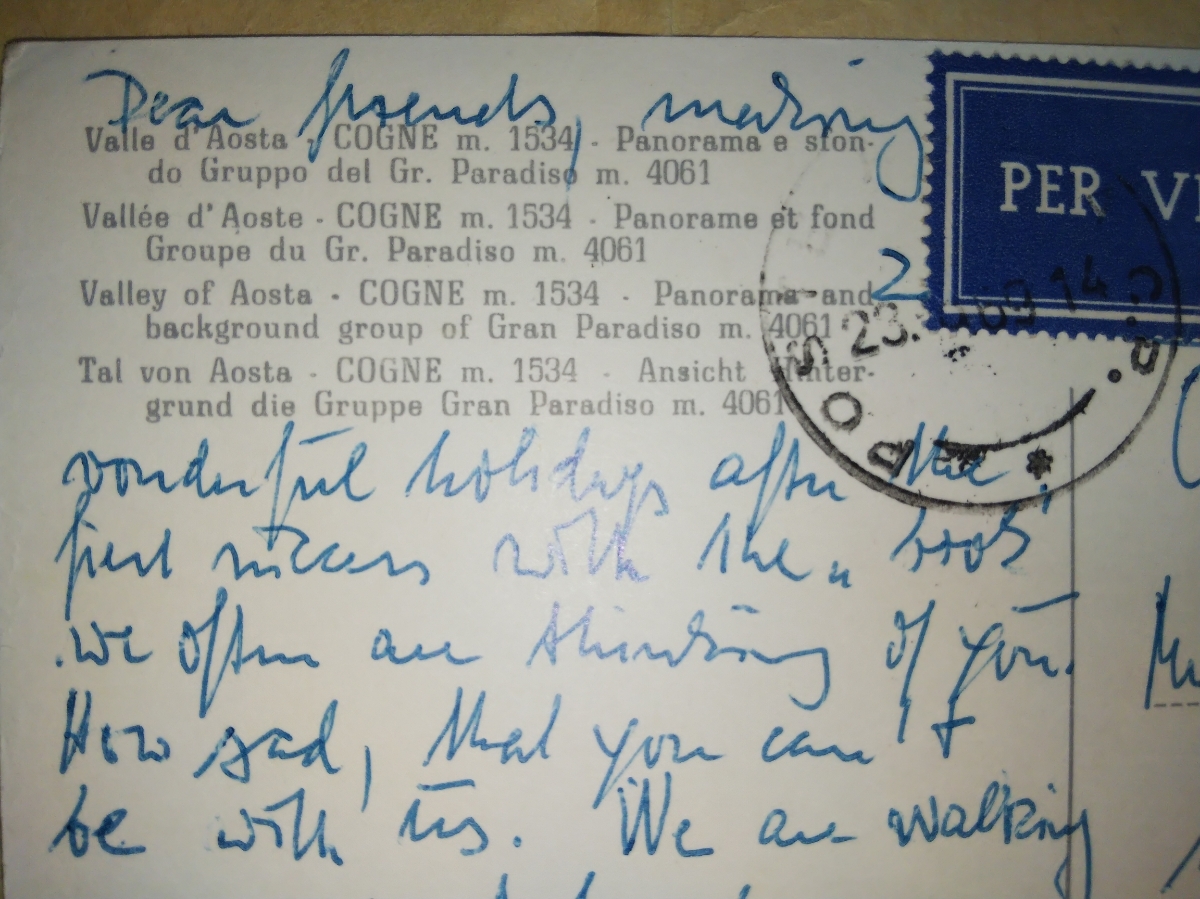 Dear friends, making
Valle d'Aosta - COGNE m. 1534 - Panorama e sfon-
do Gruppo del Gr. Paradiso m. 4061
Vallée d'Aoste - COGNE m. 1534 - Panorame et fond
Groupe du Gr. Paradiso m. 4061
2
Valley of Aosta - COGNE m. 1534 - Panorama and
background group of Gran Paradiso m. 4061
Tal von Aosta - COGNE m. 1534 - Ansicht Hinter-
grund die Gruppe Gran Paradiso m. 4061
PER VI
23. 69 14
POS
wonderful holidays after the
first success with the „book"
we often are thinking of you.
How sad, that you can't
be with us. We are walking